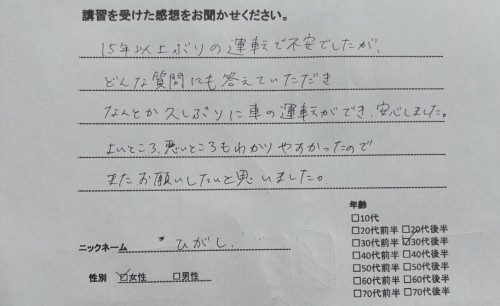 講習を受けた感想をお聞かせください。
15年以上ぶりの運転で不安でしたが、
どんな質問にも答えていただき
なんとか久しぶりに車の運転ができ、安心しました。
よいところ、悪いところもわかりやすかったので
またお願いしたいと思いました。
ニックネーム ひがし
性別 ☑女性 □男性
年齢
□10代
□20代前半 □20代後半
□30代前半 ☑30代後半
□40代前半 □40代後半
□50代前半 □50代後半
□60代前半 □60代後半
□70代前半 □70代後半